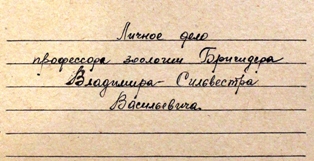 Личное дело
профессора зоологии Бригидера
Владимира-Сильвестра
Васильевича.